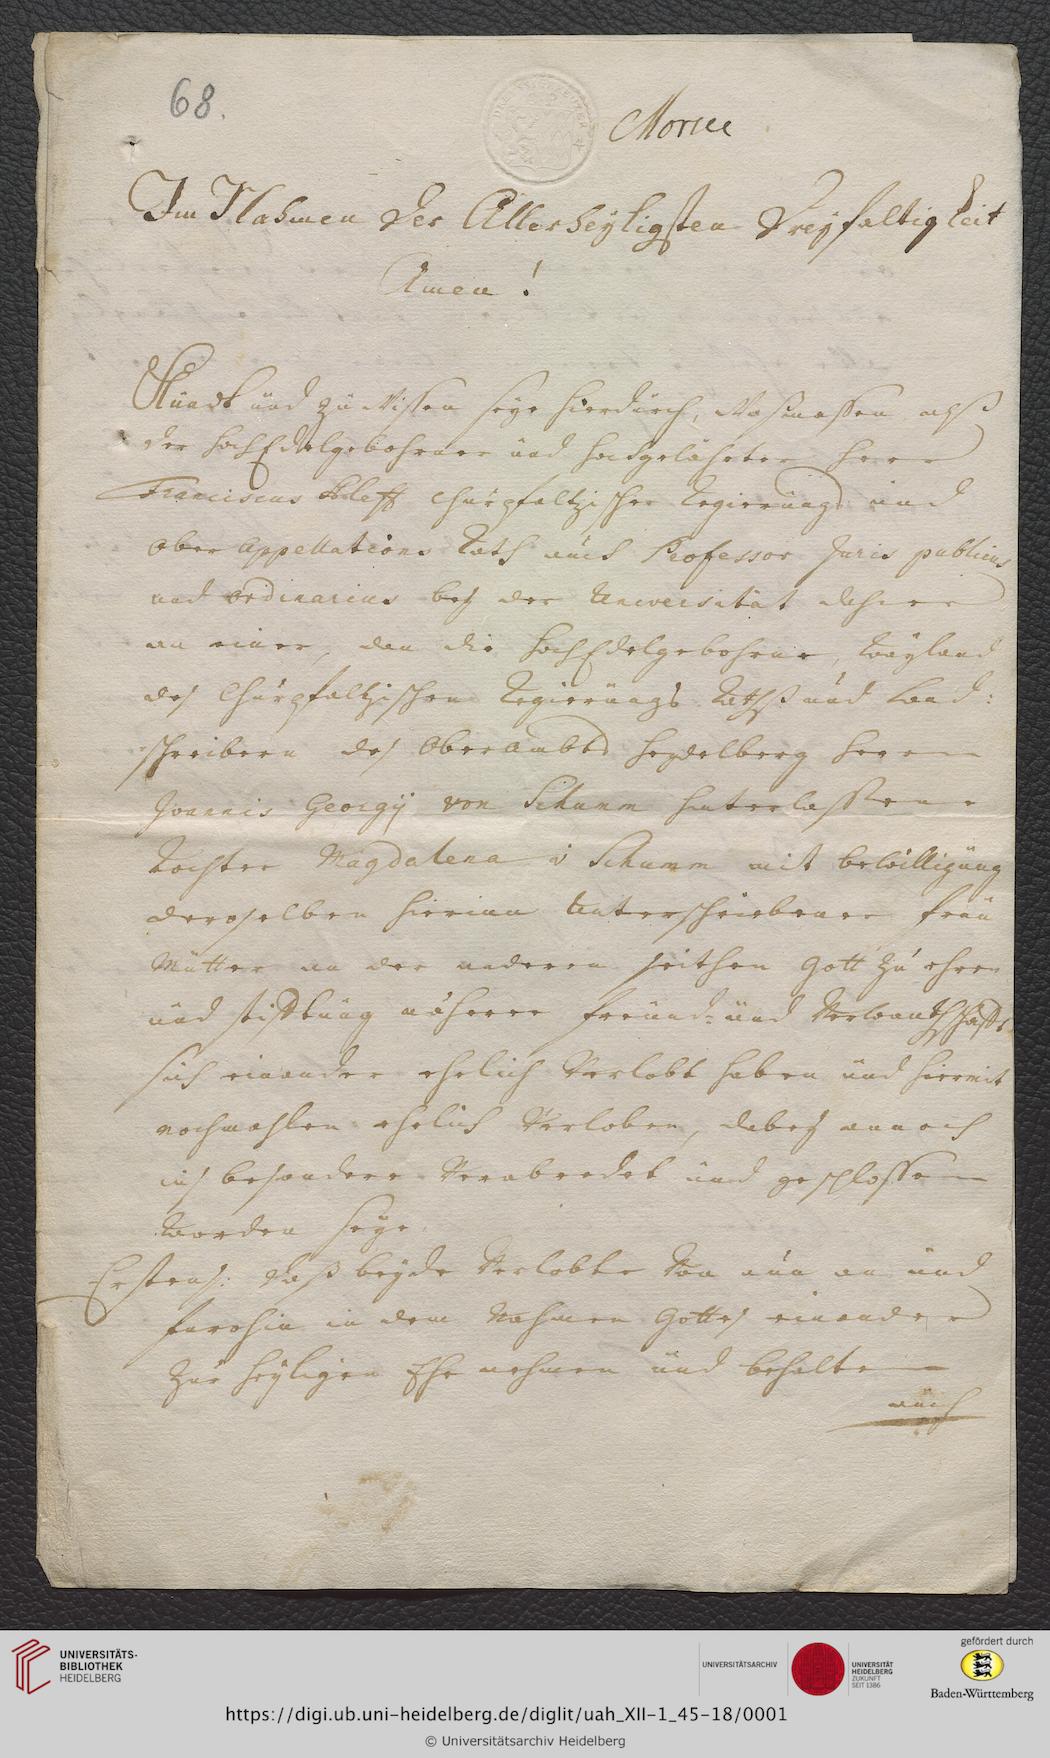 68.
Im Nahmen der Allerheyligsten Dreyfaltigkeit
Amen !
Kundt und zu Wissen seye hierdurch, Wasmassen
der HochEdelgebohrner und hochgelährter Herr
Franciscus Aleff Churpfaltzischer Regierungs und
Ober Appellations Rath auch Professor Juris publicus
und ordinarius bey der Universität dahier
an einer, dan die HochEdelgebohrne, Wayland
des Churpfaltzischen Regierungs Raths und Land:
schreibern des OberAmbts Heydelberg Herrn
Joannis Georgÿ von Schumm hinterlassene
Tochter Magdalena v Schumm mit bewilligung
deroselben hierinn Unterschriebener Frau
Mutter an der anderen seithen Gott zu ehren
und stifftung näherer freund- und Verwandtschafft
sich einander ehelich Verlobt haben und hiermit
nochmahlen ehelich Verloben, dabey annoch
ins besondere Verabredet und geschlossen
worden seye
Erstens: daß beyde Verlobte Von nun an und
furohin in dem Nahmen Gottes einander
zur heyligen Ehe nehmen und behalten
auch
UNIVERSITÄTS-
BIBLIOTHEK
HEIDELBERG
UNIVERSITÄTSARCHIV
UNIVERSITÄT
HEIDELBERG
ZUKUNFT
SEIT 1386
gefördert durch
Baden-Württemberg
https://digi.ub.uni-heidelberg.de/diglit/uah_XII-1_45-18/0001
© Universitätsarchiv Heidelberg